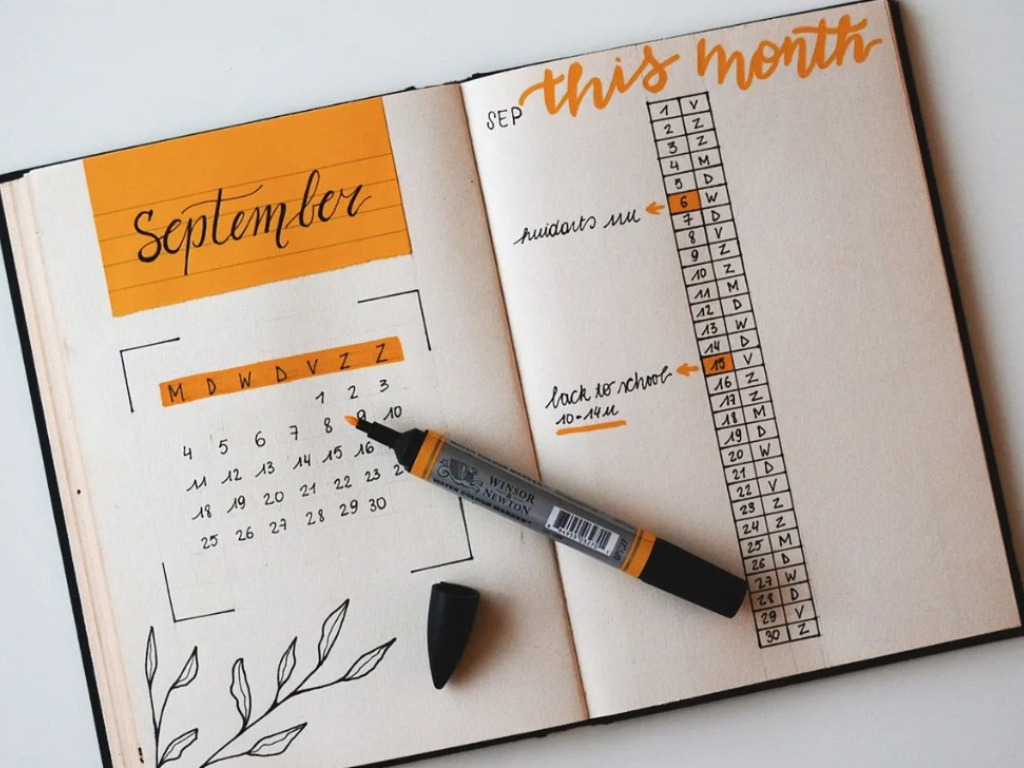 September
M D W D V Z Z
1 2 3
4 5 6 7 8 9 10
11 12 13 14 15 16
18 19 20 21 22 23
25 26 27 28 29 30
this month
SEP
1 V
2 Z
3 Z
4 M
5 D
6 W
huidarts
7 D
8 V
9 Z
10 Z
11 M
12 D
13 W
14 D
15 V
back to school
10-14u
16 Z
17 Z
18 M
19 D
20 W
21 D
22 V
23 Z
24 Z
25 M
26 D
27 W
28 D
29 V
30 Z
WINSOR
& NEWTON
WATER COLOUR MARKER